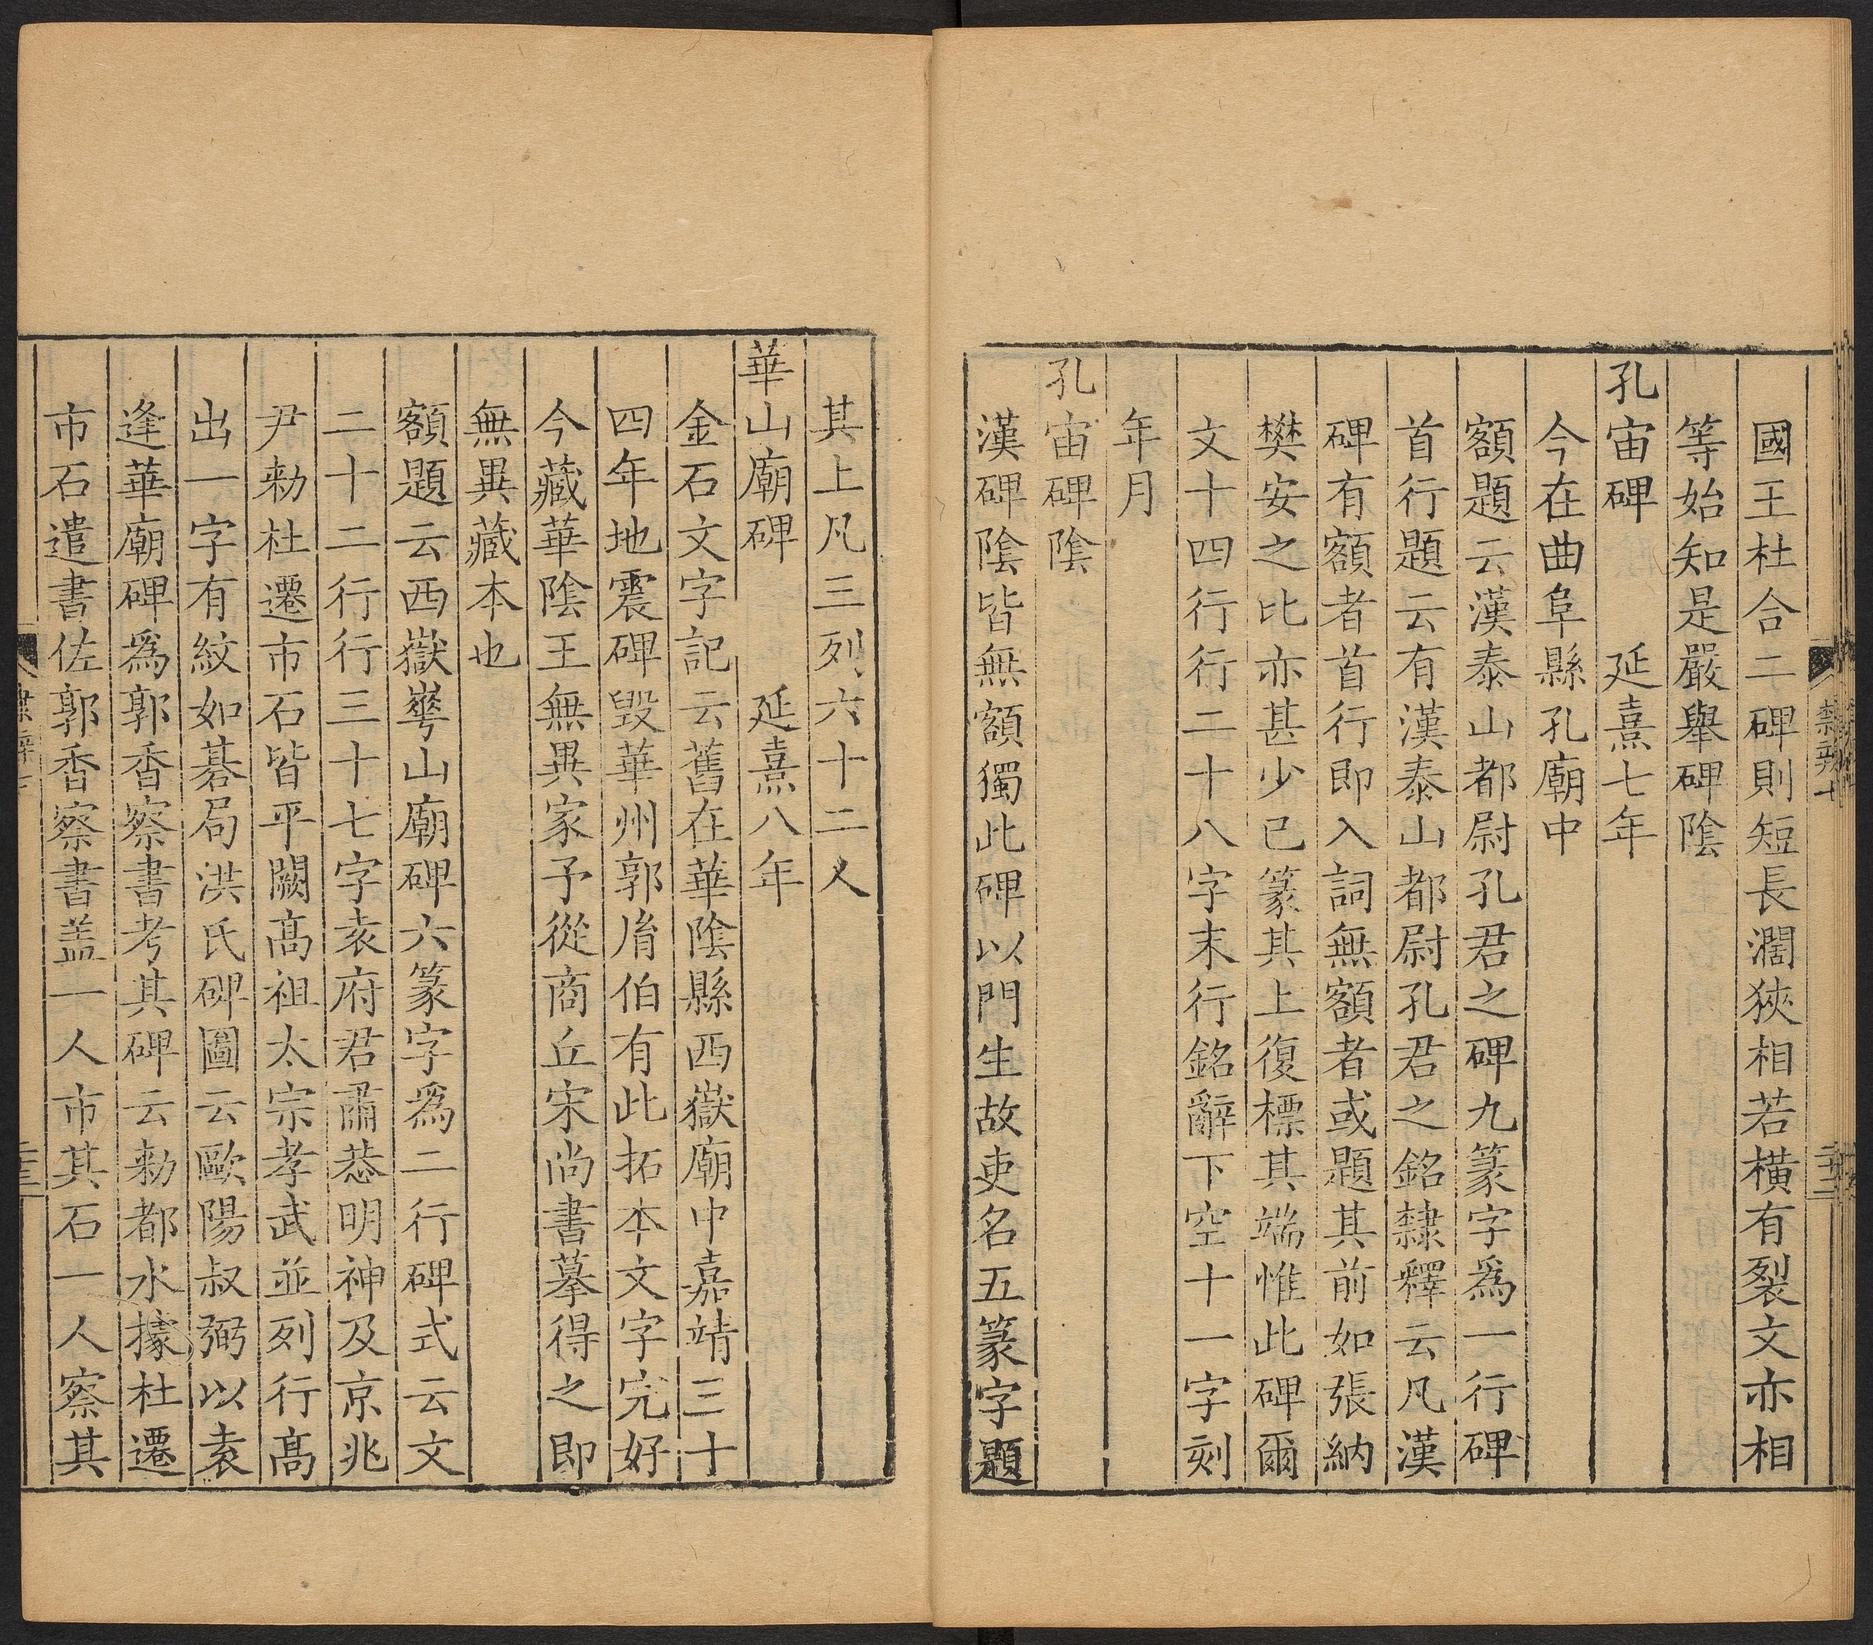 國王杜合二碑則短長濶狹相若橫有裂文亦相
等始知是嚴舉碑陰
孔宙碑　延熹七年
今在曲阜縣孔廟中
額題云漢泰山都尉孔君之碑九篆字爲一行碑
首行題云有漢泰山都尉孔君之銘隸釋云凡漢
碑有額者首行即入詞無額者或題其前如張納
樊安之比亦甚少已篆其上復標其端惟此碑爾
文十四行行二十八字末行銘辭下空十一字刻
年月
孔宙碑陰
漢碑陰皆無額獨此碑以門生故吏名五篆字題
其上凡三列六十二人
華山廟碑　延熹八年
金石文字記云舊在華陰縣西嶽廟中嘉靖三十
四年地震碑毀華州郭胤伯有此拓本文字完好
今藏華陰王無異家予從商丘宋尚書摹得之即
無異藏本也
額題云西嶽崋山廟碑六篆字爲二行碑式云文
二十二行行三十七字袁府君肅恭明神及京兆
尹勑杜遷市石皆平闕高祖太宗孝武並列行高
出一字有紋如碁局洪氏碑圖云歐陽叔弼以袁
逢華廟碑爲郭香察書考其碑云勑都水掾杜遷
市石遣書佐郭香察書盖一人市其石一人察其